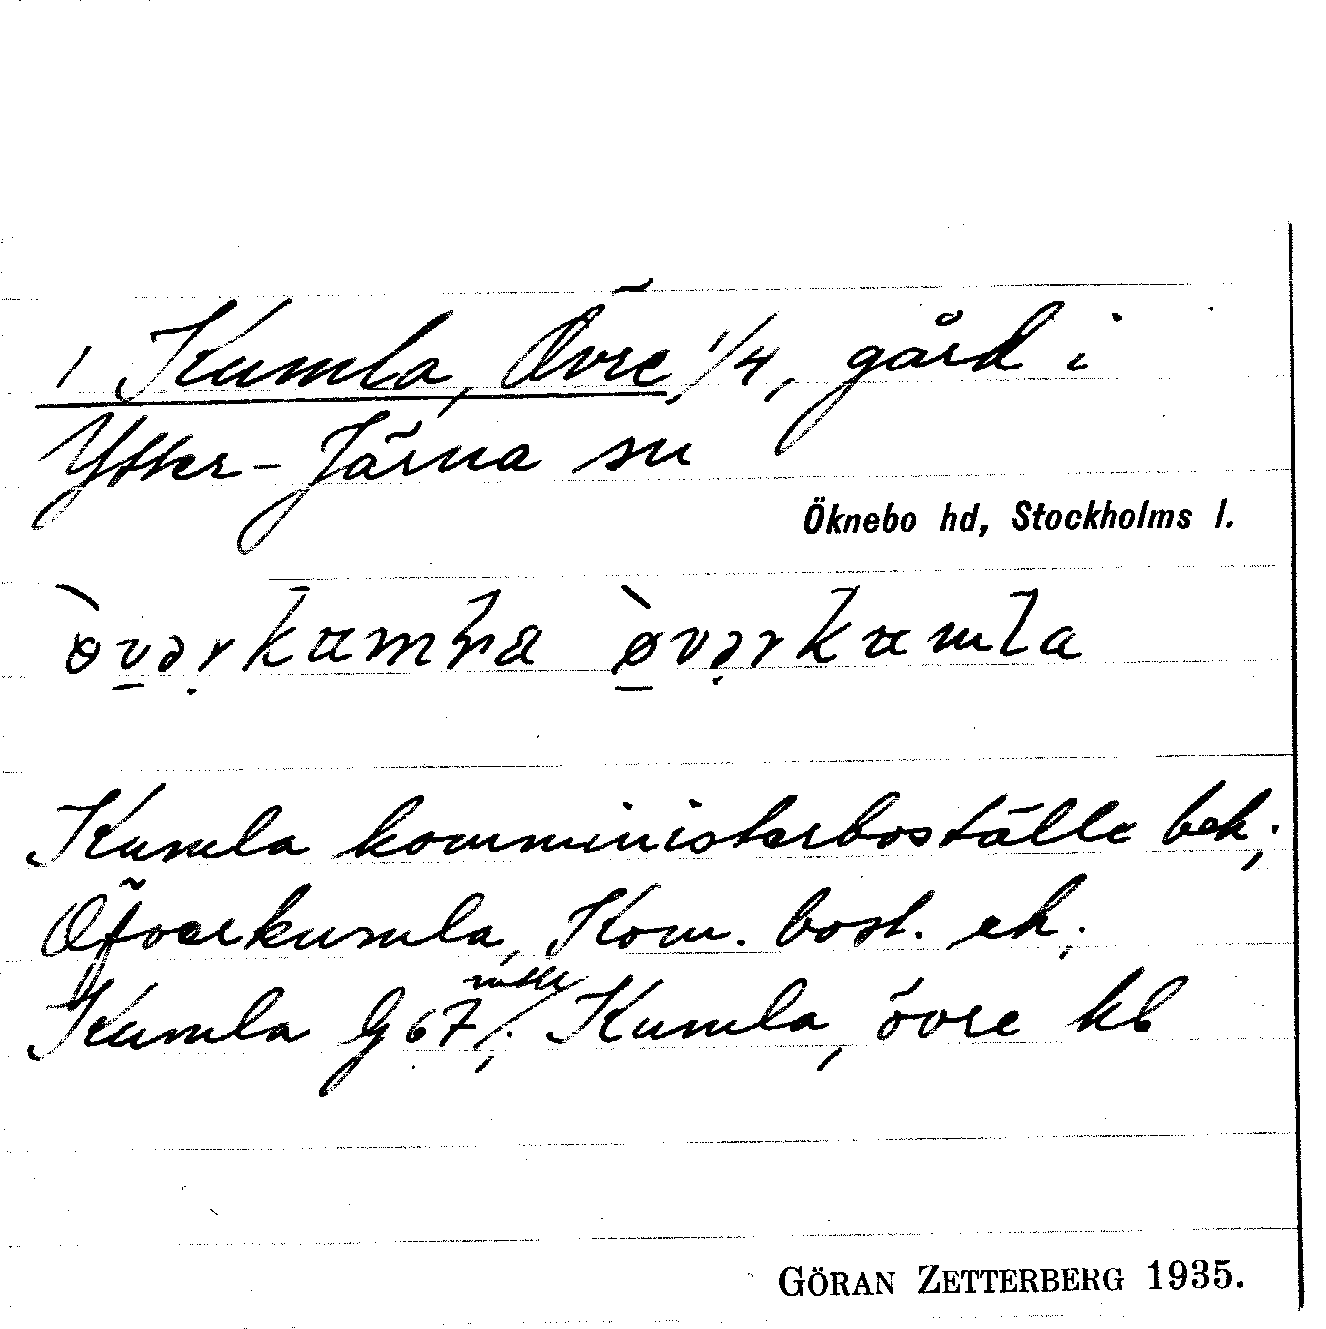 1 Kumla, Övre 1/4, gård i
Ytter-Järna sn
Öknebo hd, Stockholms l.
Kumla komministerboställe bek;
Öfverkumla, Kom. bost. ek;
Kumla G 67; Kumla, övre kb
GÖRAN ZETTERBERG 1935.